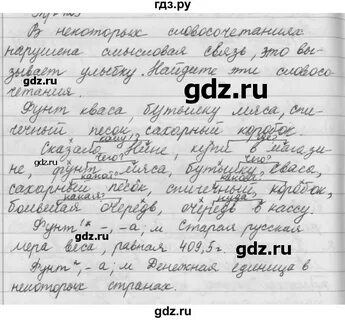 gdz.ru
В некоторых словосочетаниях
нарушена смысловая связь, это вы-
зывает улыбку. Найдите эти словосо-
четания.
Фунт кваса, бутылку мяса, спи-
чичный песок, сахарный коробок.
Сказало Нине, купи в магази-
не, фунт мяса, бутылку кваса,
сахарный песок, спичечный коробок,
очередь, очередь в кассу.
Фунт¹ -, -а; м Старая русская
мера веса, равная 409,5 г.
Фунт², -а; м Денежная единица в
некоторых странах.
gdz.ru
gdz.ru
gdz.ru